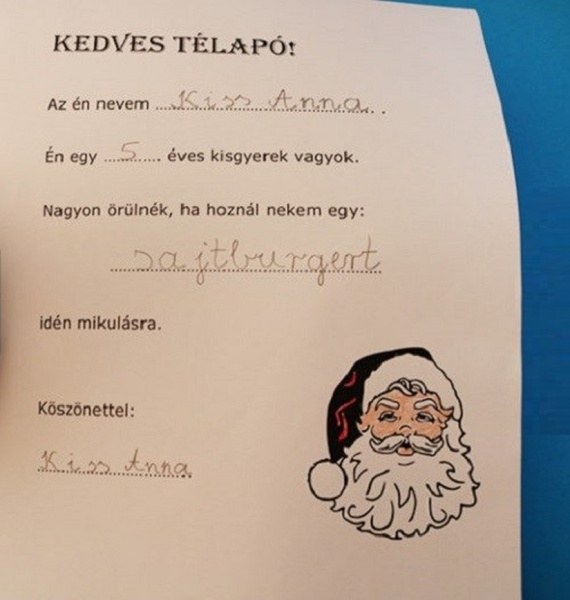 KEDVES TÉLAPÓ!
Az én nevem ...Kiss Anna... .
Én egy ...5... éves kisgyerek vagyok.
Nagyon örülnék, ha hoznál nekem egy:
sajtburgert
idén mikulásra.
Köszönettel:
Kiss Anna